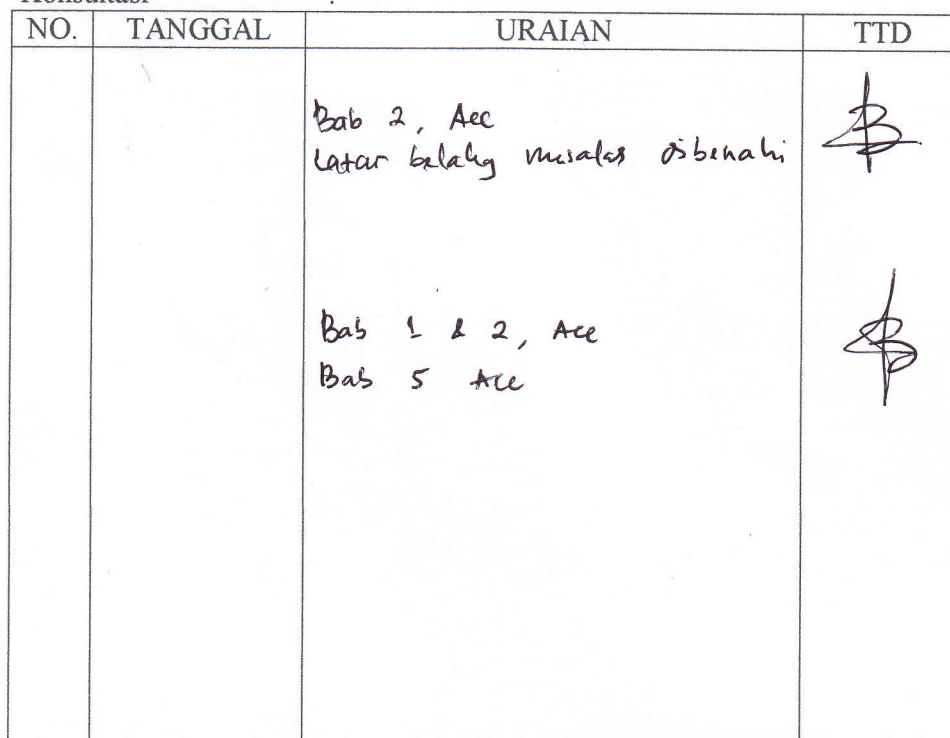 Konsultasi :
NO. TANGGAL URAIAN TTD
Bab 2, Acc
Latar belakg masalah dibenahi
Bab 1 & 2, Acc
Bab 5 Acc